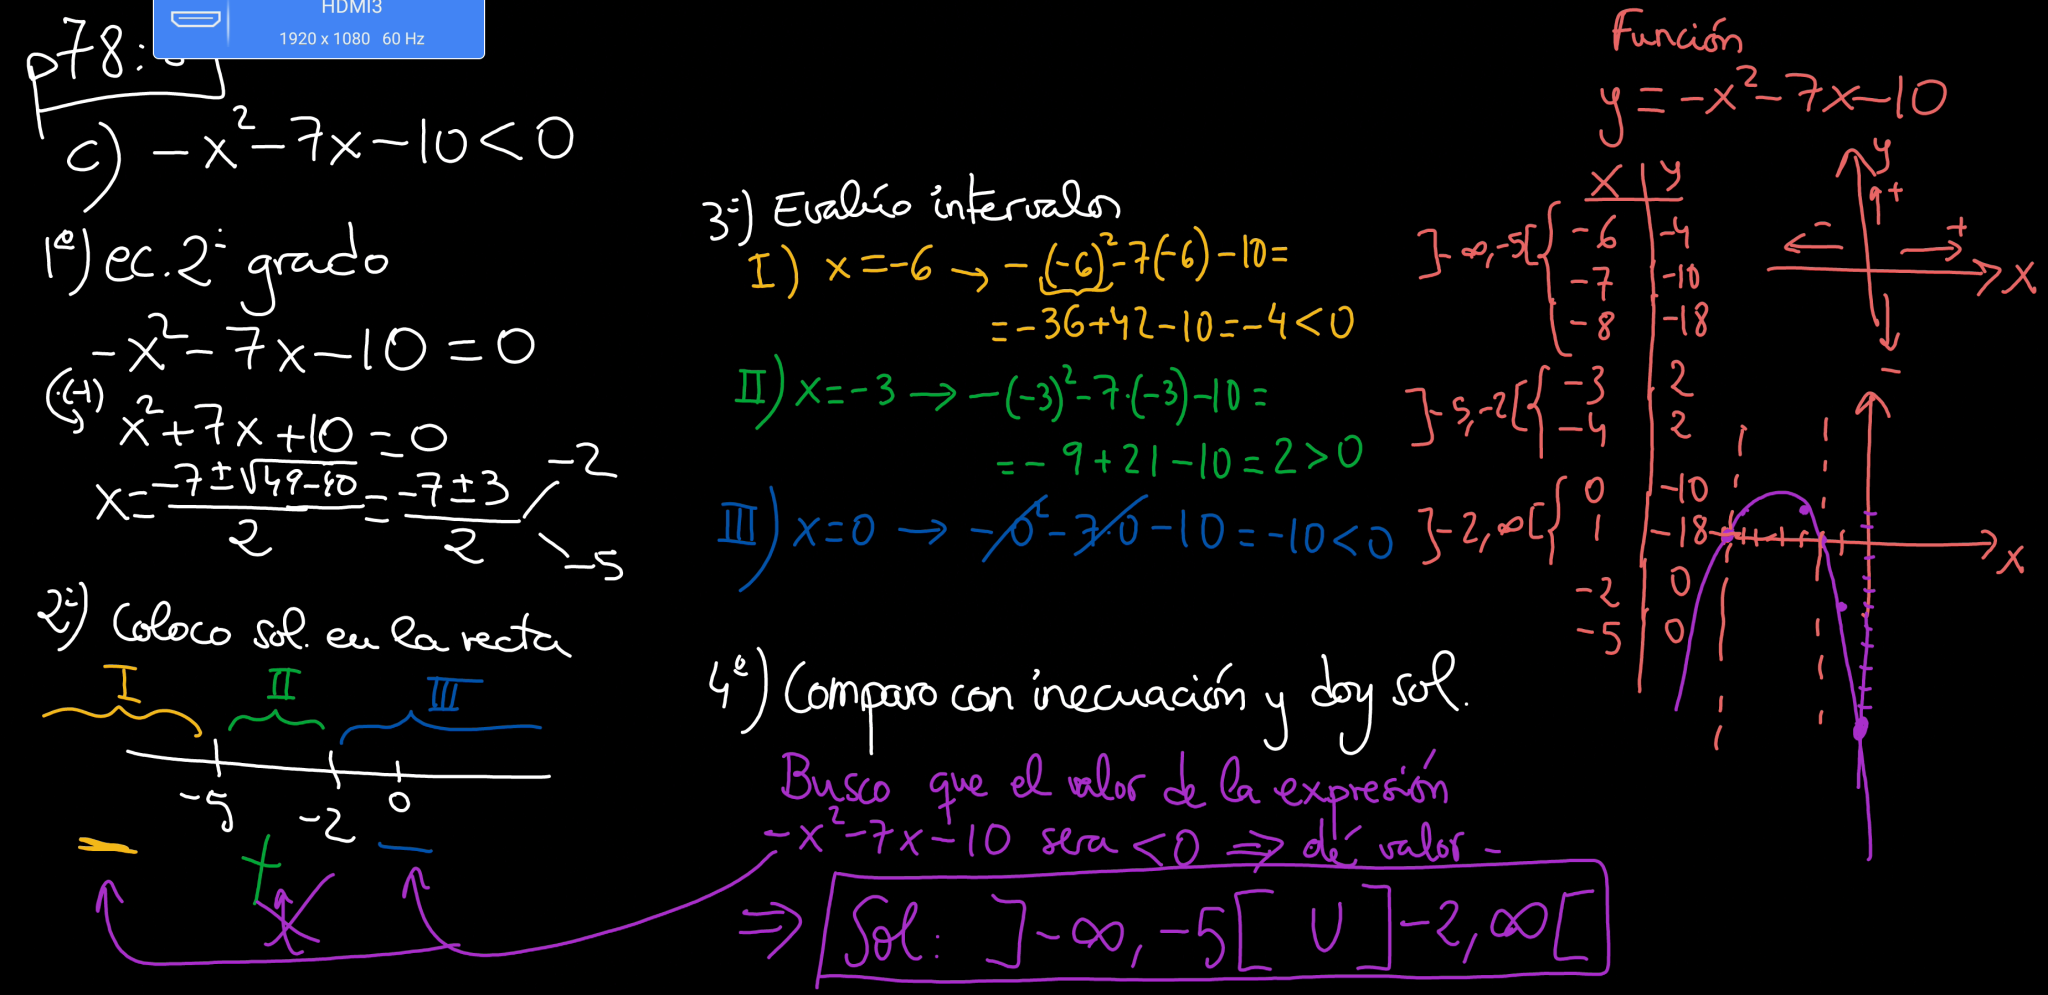 HDMI3
1920 x 1080 60 Hz
p78:
c) -x²-7x-10<0
1º) ec. 2º grado
-x²-7x-10=0
(·(-1)
x²+7x+10=0
x=(-7±√(49-40))/2=(-7±3)/2
-2
-5
2º) Coloco sol. en la recta
I II III
-5 -2 0
- + -
3º) Evalúo intervalos
I) x=-6 → -(-6)²-7(-6)-10=
=-36+42-10=-4<0
II) x=-3 → -(-3)²-7·(-3)-10=
=-9+21-10=2>0
III) x=0 → -0²-7·0-10=-10<0
4º) Comparo con inecuación y doy sol.
Busco que el valor de la expresión
-x²-7x-10 sera <0 ⇒ dé valor -
⇒ Sol: ]-∞,-5[ U ]-2,∞[
Función
y=-x²-7x-10
x y
]-∞,-5[ { -6 -4
-7 -10
-8 -18
]-5,-2[ { -3 2
-4 2
]-2,∞[ { 0 -10
1 -18
-2 0
-5 0
y
+
- +
x
-
x